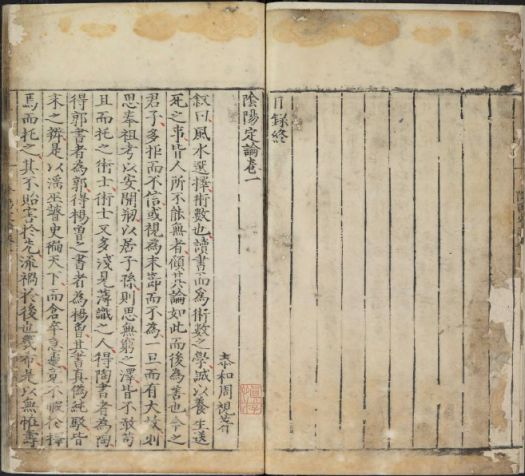 目録終
陰陽定論卷一
泰和周視著
叙曰風水選擇術數也讀書而為術數之學誠以養生送
死之事皆人所不能無者顧其論如此而後為善也今之
君子多拒而不信或視為末節而不為一旦而有大故則
思奉祖考以安開剏以居子孫則思無窮之澤皆不敢苟
且而托之術士術士又多淺見薄識之人得陶書者為陶
得郭書者為郭得楊曾之書者為楊曾其書真偽純駁皆
未之辨是以滛巫瞽史徧天下而倉卒急遽竟不暇於擇
焉而托之其不貽害於先流禍於後也幾希是以無